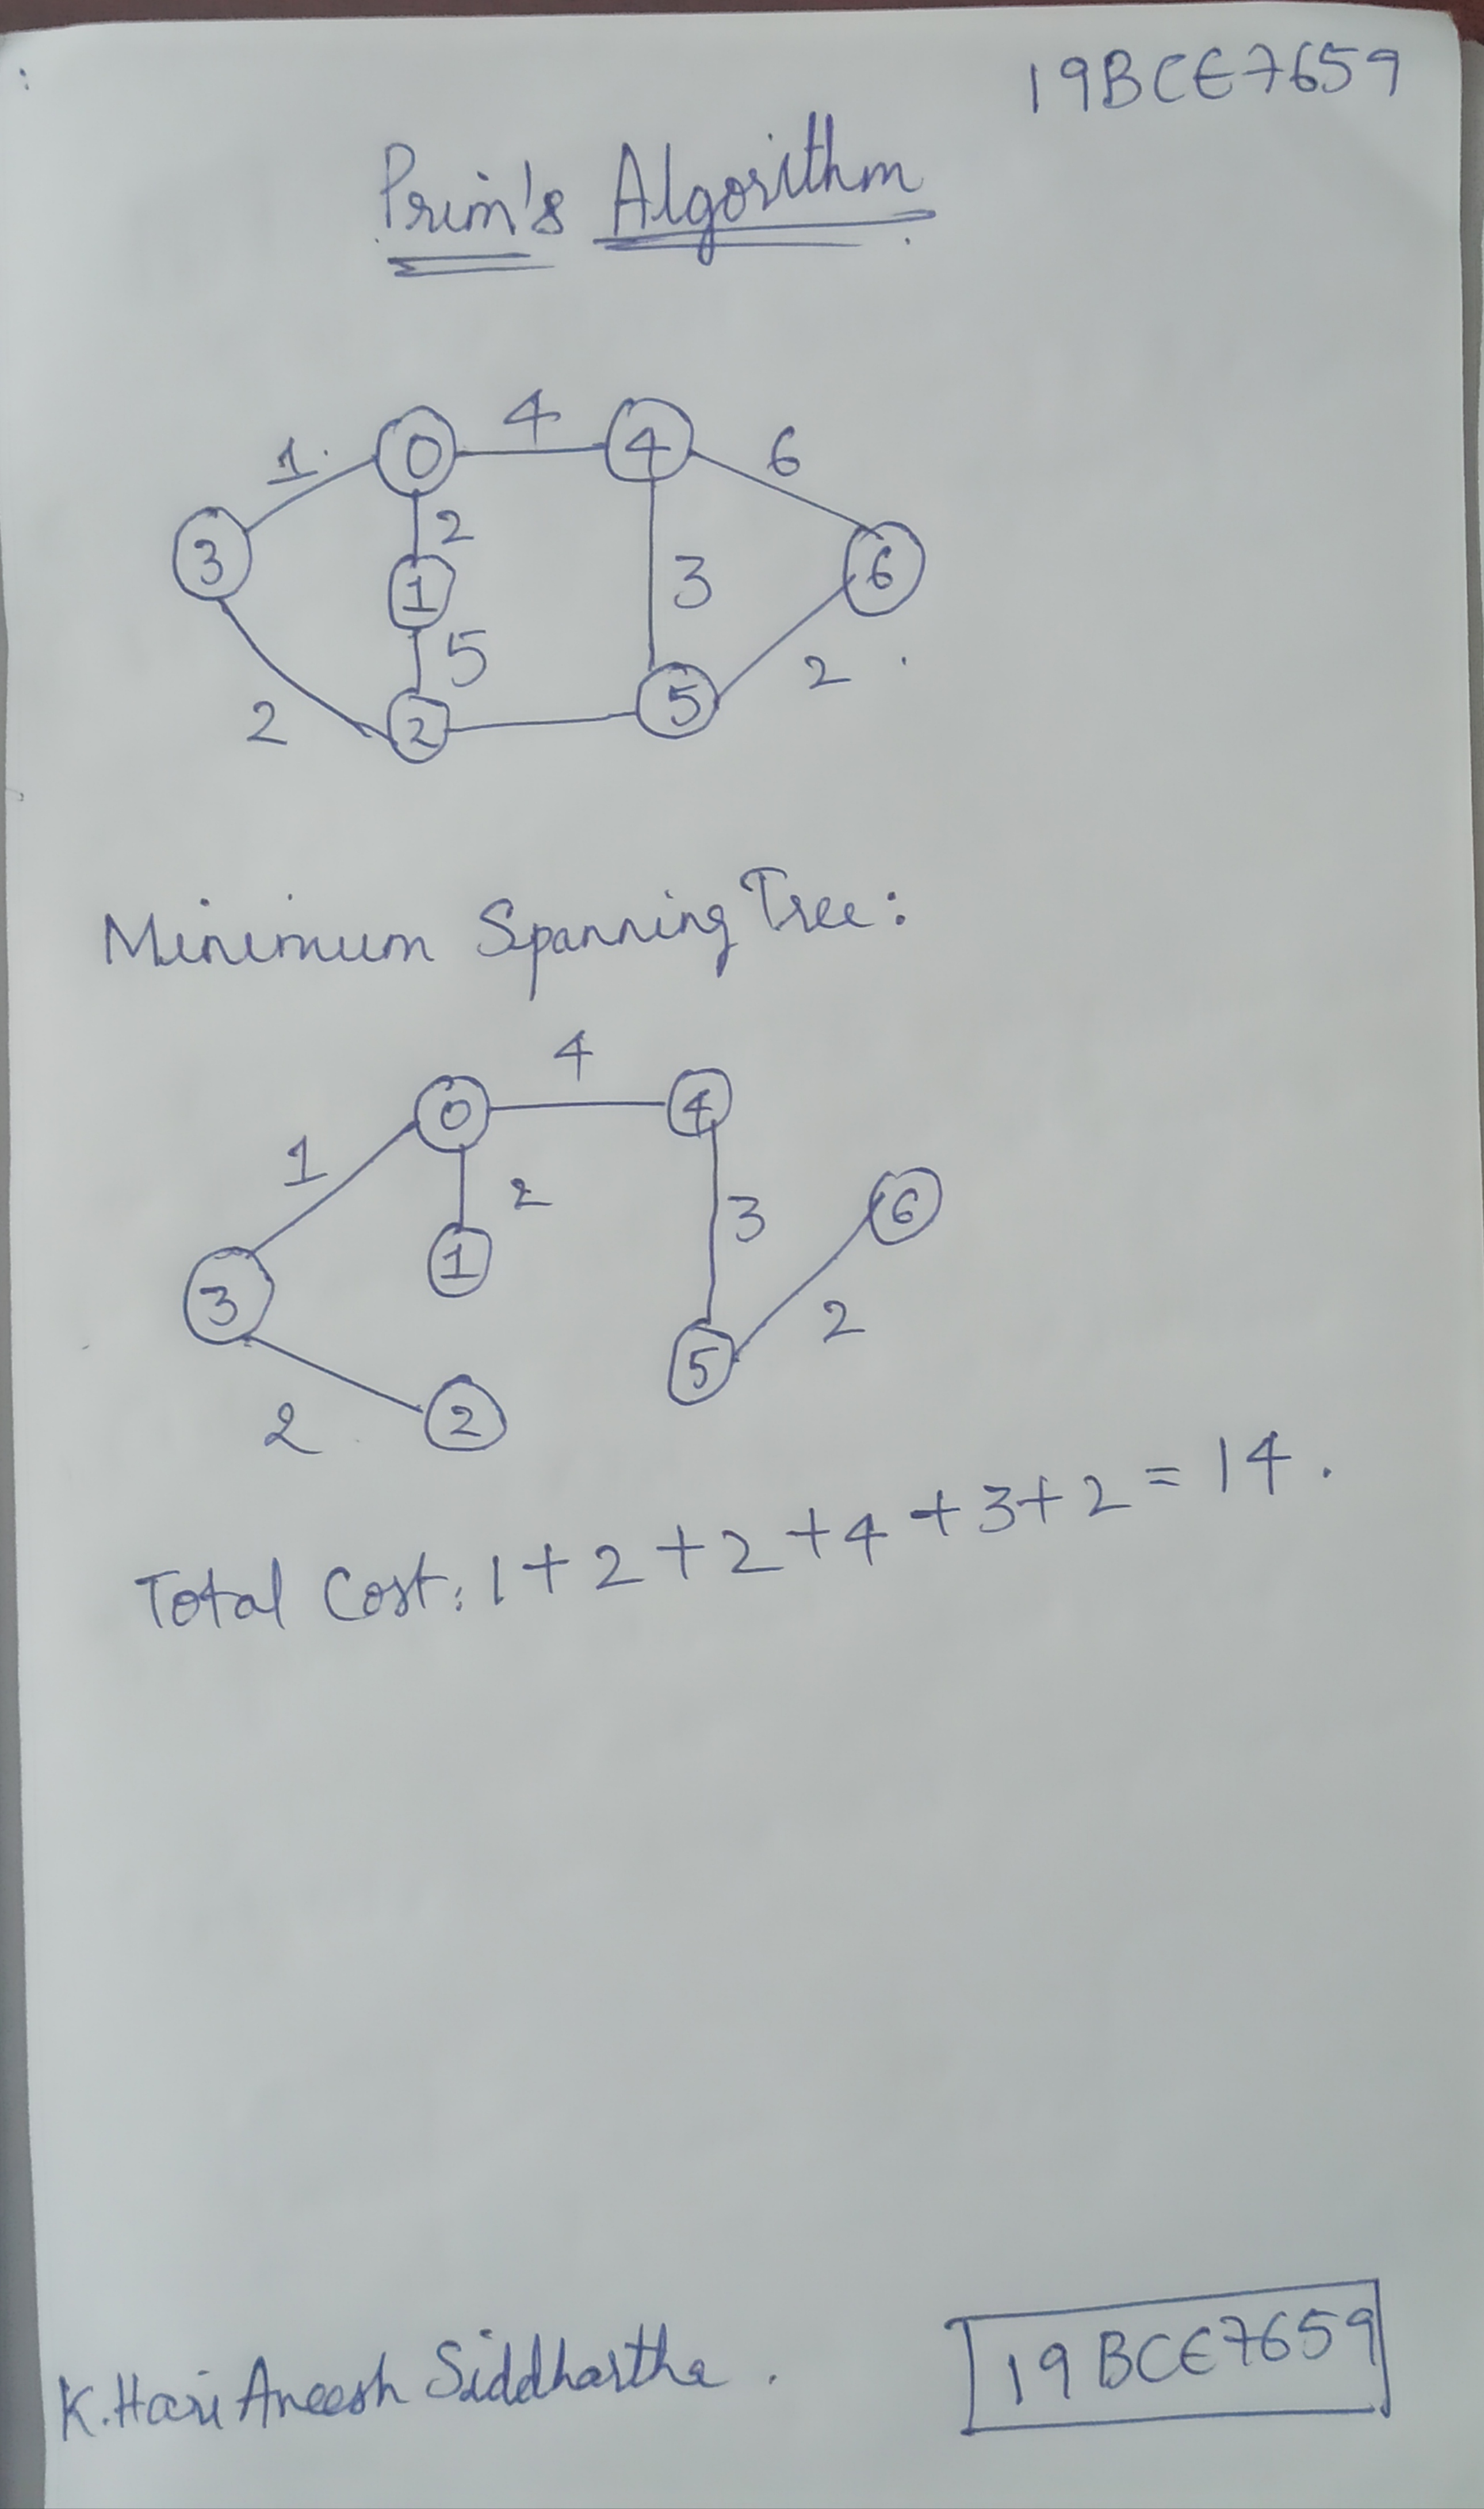 19BCE7659
Prim's Algorithm
4
1. 0 4 6
2
3 1 3 6
5
2 2 5 2
Minimum Spanning Tree:
4
0 4
1 2 3 6
3 1
2 5 2
2
Total Cost: 1+2+2+4+3+2=14.
K. Hari Aneesh Siddhartha. 19BCE7659